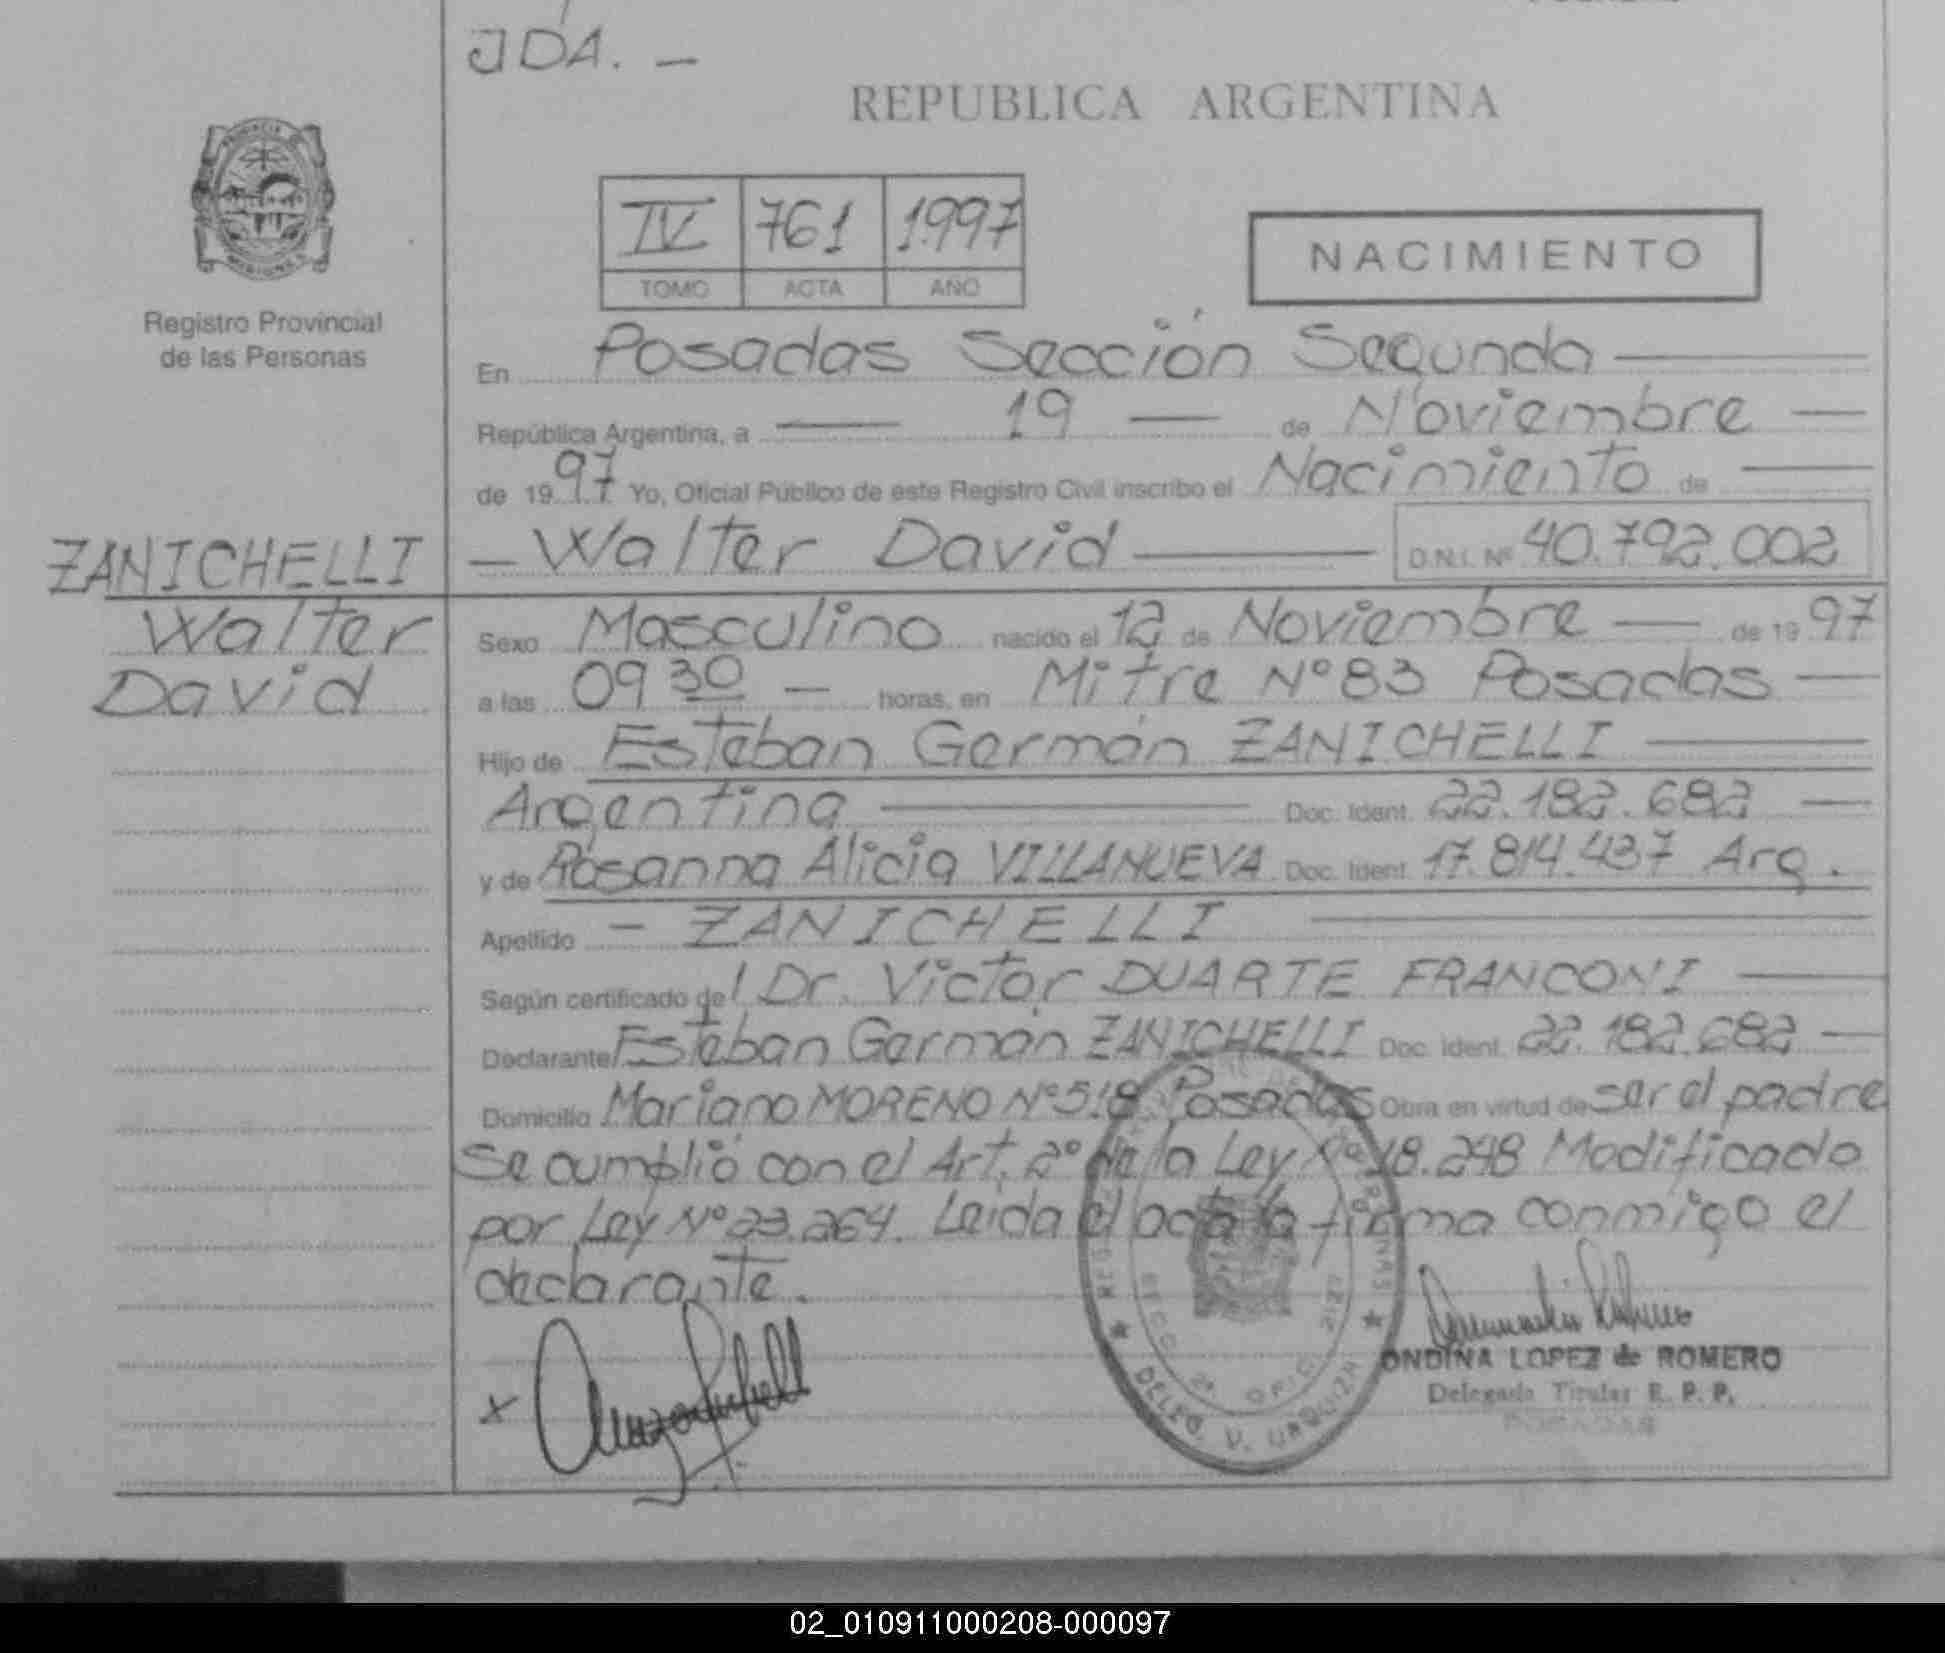 JDA. —
REPUBLICA ARGENTINA
IV 761 1997
TOMO ACTA AÑO
NACIMIENTO
Registro Provincial
de las Personas
En Posadas Sección Segunda
República Argentina, a 19 de Noviembre
de 1997 Yo, Oficial Público de este Registro Civil inscribo el Nacimiento de
Walter David D.N.I. Nº 40.792.002
ZANICHELLI
Walter
David
Sexo Masculino nacido el 12 de Noviembre de 1997
a las 09 30 horas, en Mitre Nº 83 Posadas
Hijo de Esteban Germán ZANICHELLI
Argentina Doc. Ident. 22.182.682
y de Rosanna Alicia VILLANUEVA Doc. Ident. 17.814.437 Arg.
Apellido ZANICHELLI
Según certificado de Dr. Victor DUARTE FRANCONI
Declarante Esteban Germán ZANICHELLI Doc. Ident. 22.182.682
Domicilio Mariano MORENO Nº 518 Posadas Obra en virtud de ser el padre
Se cumplió con el Art. 2º de la Ley Nº 18.248 Modificado
por Ley Nº 23.264. Leída el acta la firma conmigo el
declarante.
SECC. 2ª OFIC. 2121
DELEG. V. URQUIZA
ONDINA LOPEZ de ROMERO
Delegada Titular R. P. P.
POSADAS
02_010911000208-000097